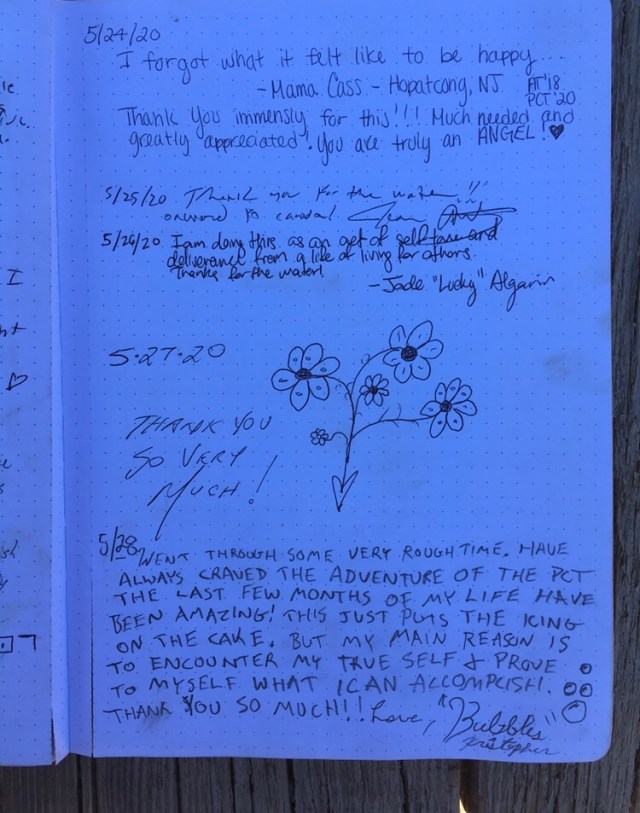 5/24/20
I forgot what it felt like to be happy....
- Mama Cass - Hopatcong, NJ AT'18
PCT'20
Thank you immensly for this!!! Much needed and
greatly appreciated! You are truly an ANGEL!
5/25/20 Thank you for the water!!
onward to canada!
5/26/20 I am doing this as an act of self love and
deliverance from a life of living for others.
Thanks for the water!
- Jade "Lucky" Algarin
5.27.20
THANK YOU
SO VERY
MUCH!
5/28 WENT THROUGH SOME VERY ROUGH TIME. HAVE
ALWAYS CRAVED THE ADVENTURE OF THE PCT
THE LAST FEW MONTHS OF MY LIFE HAVE
BEEN AMAZING! THIS JUST PUTS THE ICING
ON THE CAKE. BUT MY MAIN REASON IS
TO ENCOUNTER MY TRUE SELF & PROVE
TO MYSELF WHAT I CAN ACCOMPLISH.
THANK YOU SO MUCH!! Love, "Bubbles"